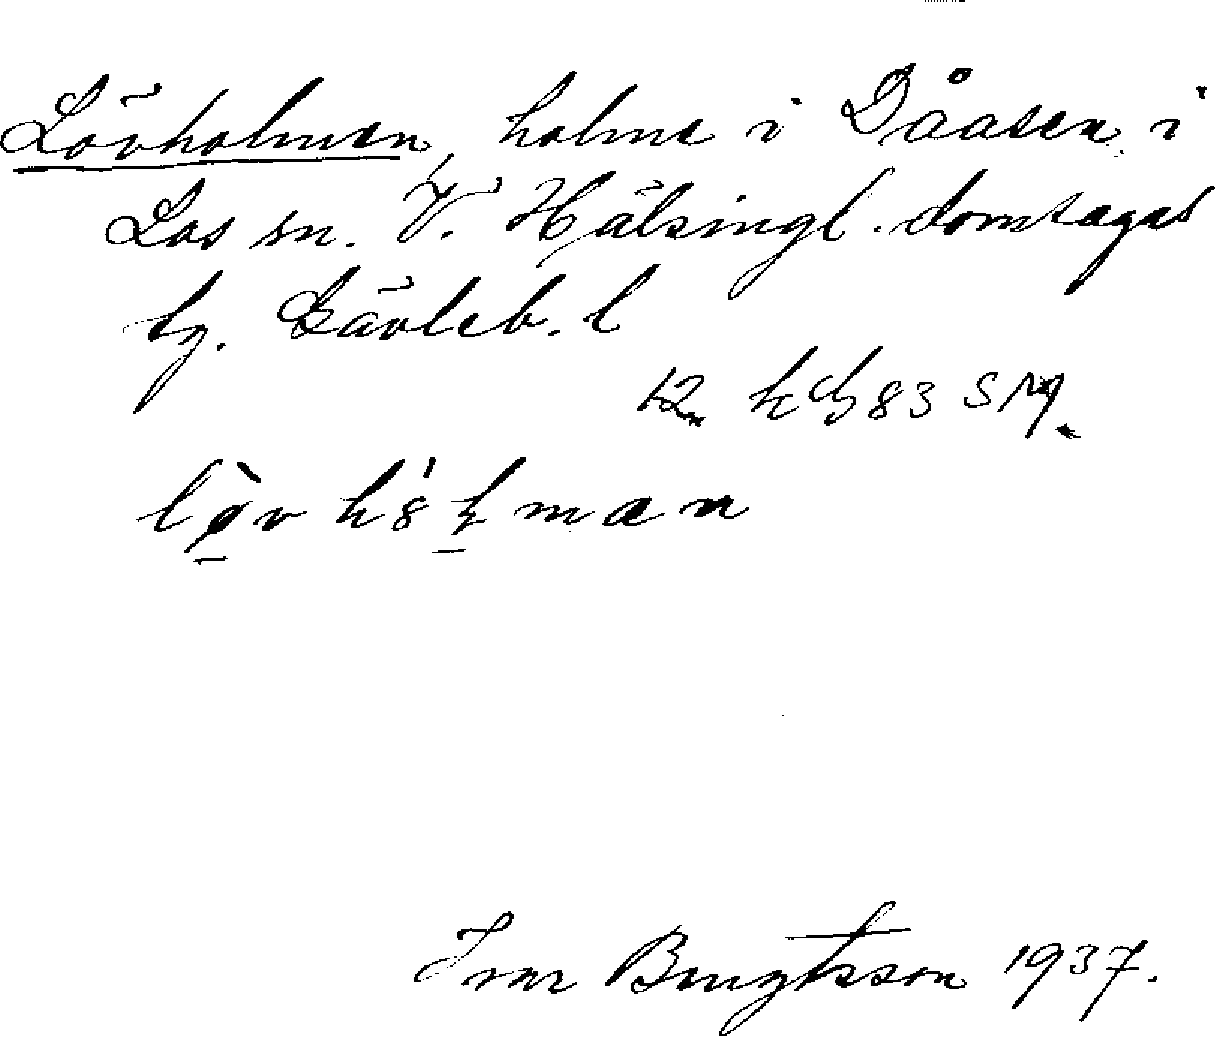 Lövholmen, holme i Dåasen i
Los sn. V. Hälsingl. domsagas
tg. Gävleb. l
12 83 SM.
Ivar Bengtsson 1937.